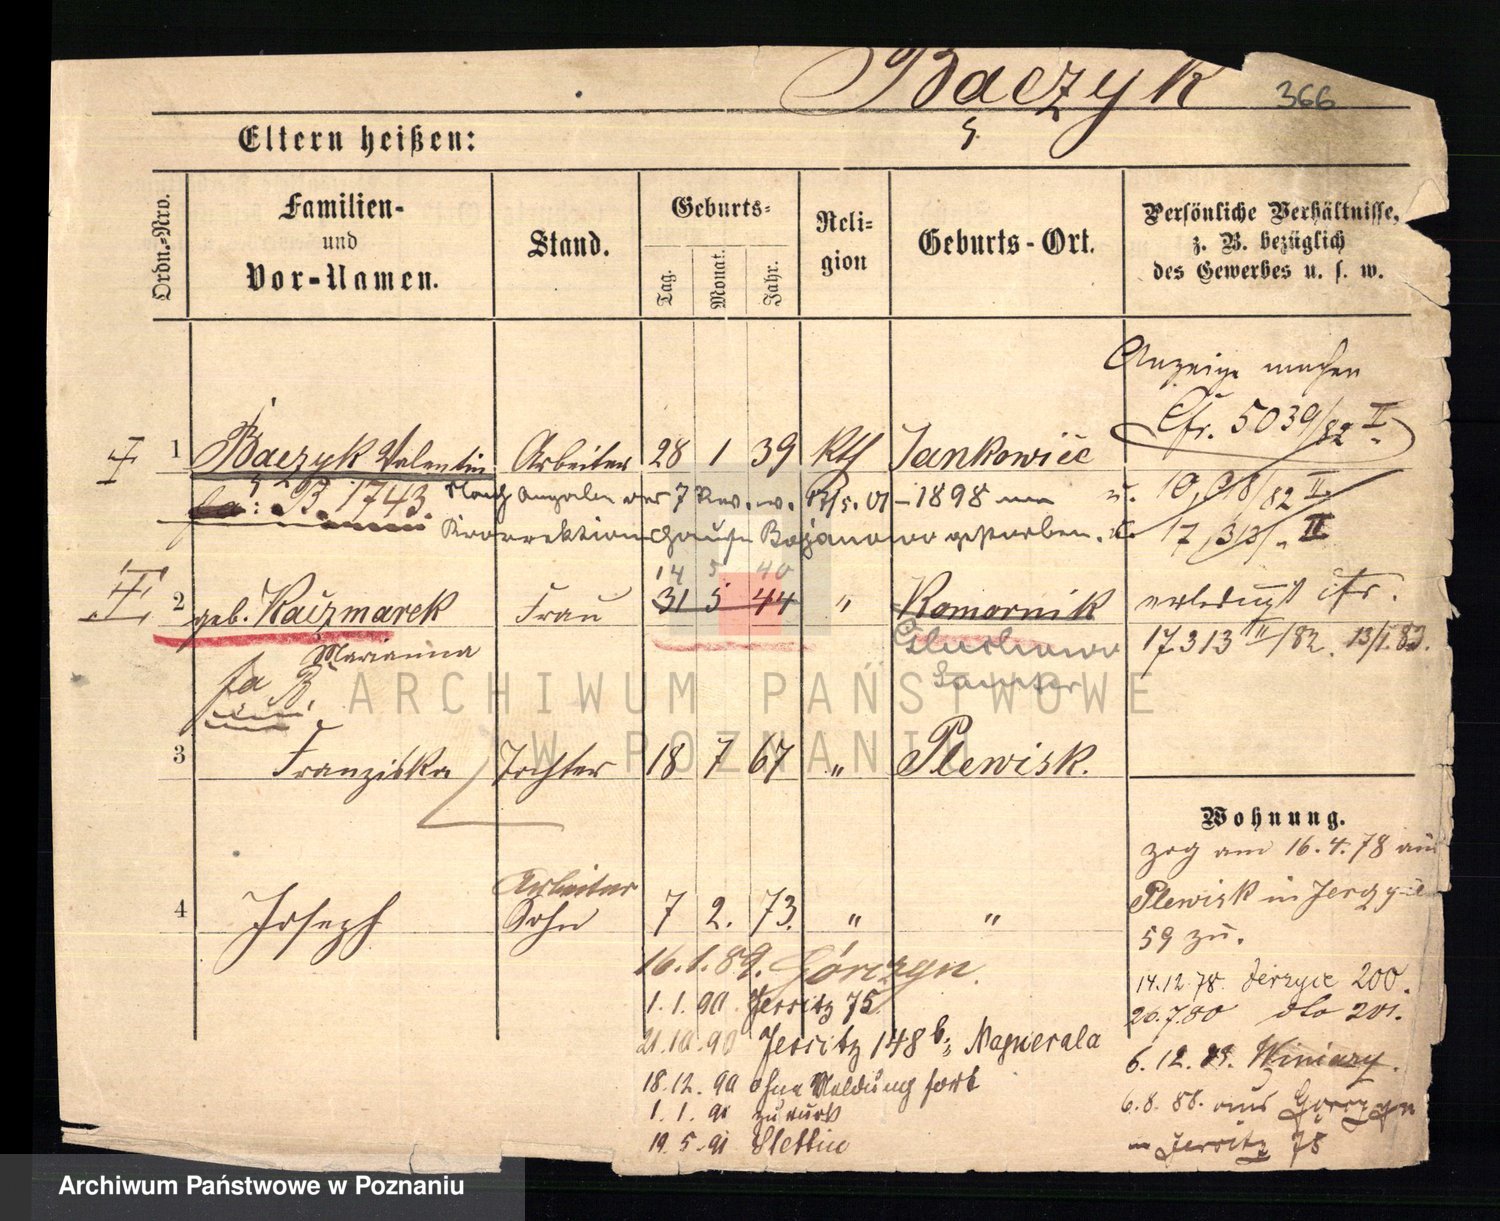 Bączyk 366
Eltern heißen:
Ordn.-Nro.
Familien-
und
Vor-Namen.
Stand.
Geburts-
Tag. Monat. Jahr.
Reli-
gion
Geburts-Ort.
Persönliche Verhältnisse,
z. B. bezüglich
des Gewerbes u. s. w.
Anzeige machen
Cfr. 5039/82 II.
I 1 Bączyk Valentin Arbeiter 28 1 39 Kth Jankowice
fa: B. 1743. Nach Angabe der 7 Rev. v. 1898 im
Korrektionshause Bojanowo gestorben.
14 5 40
II 2 geb. Kaczmarek Frau 31 5 44 " Komornik
Marianna
fa B.
erledigt cfr.
17313 II/82. 13/1.83.
3 Franziska Tochter 18 7 67 " Plewisk.
Wohnung.
zog am 16.4.78 aus
Plewisk in Jerzyce
59 zu.
Arbeiter
4 Joseph Sohn 7 2. 73. " "
16.1.89. Górczyn.
1.1.90 Jersitz 75
21.10.90 Jersitz 148b; Magnerala
18.12.90 ohne Meldung fort
1.1.91 zurück
19.5.91 Stettin
14.12.78. Jerzyce 200.
26.7.80 dto 201.
6.12. Winiary.
6.8.88. aus Górczyn
in Jersitz 75
ARCHIWUM PAŃSTWOWE
W POZNANIU
Archiwum Państwowe w Poznaniu